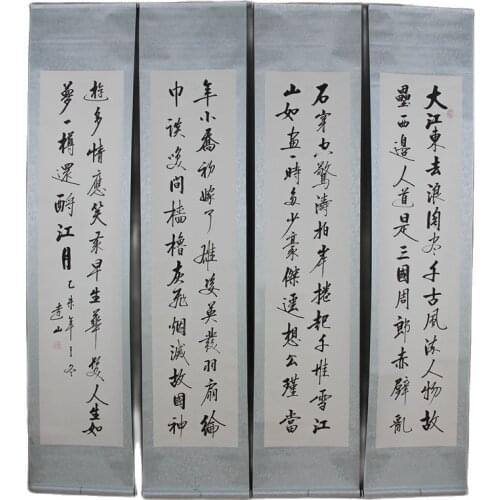 大江東去浪淘盡千古風流人物故
壘西邊人道是三國周郎赤壁亂
石穿空驚濤拍岸捲起千堆雪江
山如畫一時多少豪傑遙想公瑾當
年小喬初嫁了雄姿英發羽扇綸
巾談笑問檣櫓灰飛烟滅故國神
遊多情應笑我早生華髮人生如
夢一樽還酹江月
乙未年之冬